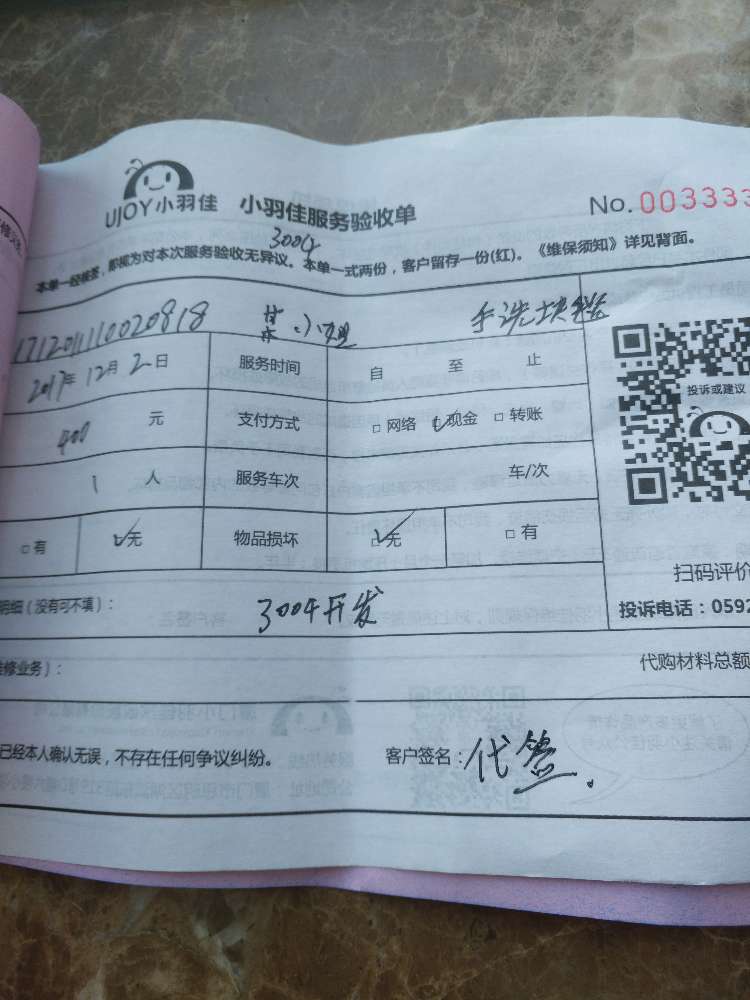 UJOY小羽佳 小羽佳服务验收单 No. 003333
3004
本单一经接签，即视为对本次服务验收无异议。本单一式两份，客户留存一份(红)。《维保须知》详见背面。
171201110020818 甘小姐 手洗块毯
2017年12月2日 服务时间 自 至 止
投诉或建议
400 元 支付方式 □ 网络 ☑ 现金 □ 转账
1 人 服务车次 车/次
□ 有 ☑ 无 物品损坏 ☑ 无 □ 有
扫码评价
明细（没有可不填）： 3004开发 投诉电话：0592
维修业务）： 代购材料总额
已经本人确认无误，不存在任何争议纠纷。 客户签名：代签.